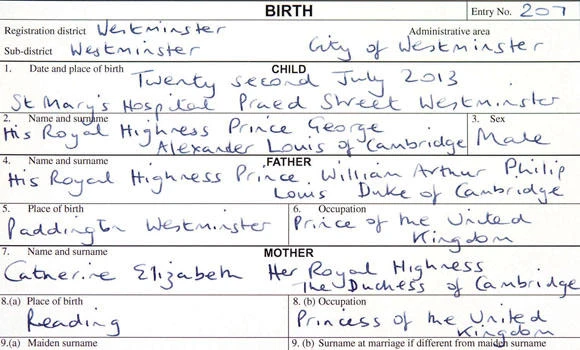 BIRTH
Entry No. 207
Registration district Westminster Administrative area
Sub-district Westminster City of Westminster
1. Date and place of birth CHILD
Twenty second July 2013
St Mary's Hospital Praed Street Westminster
2. Name and surname 3. Sex
His Royal Highness Prince George Male
Alexander Louis of Cambridge
4. Name and surname FATHER
His Royal Highness Prince William Arthur Philip
Louis Duke of Cambridge
5. Place of birth 6. Occupation
Paddington Westminster Prince of the United
Kingdom
7. Name and surname MOTHER
Catherine Elizabeth Her Royal Highness
The Duchess of Cambridge
8.(a) Place of birth 8. (b) Occupation
Reading Princess of the United
Kingdom
9.(a) Maiden surname 9. (b) Surname at marriage if different from maiden surname